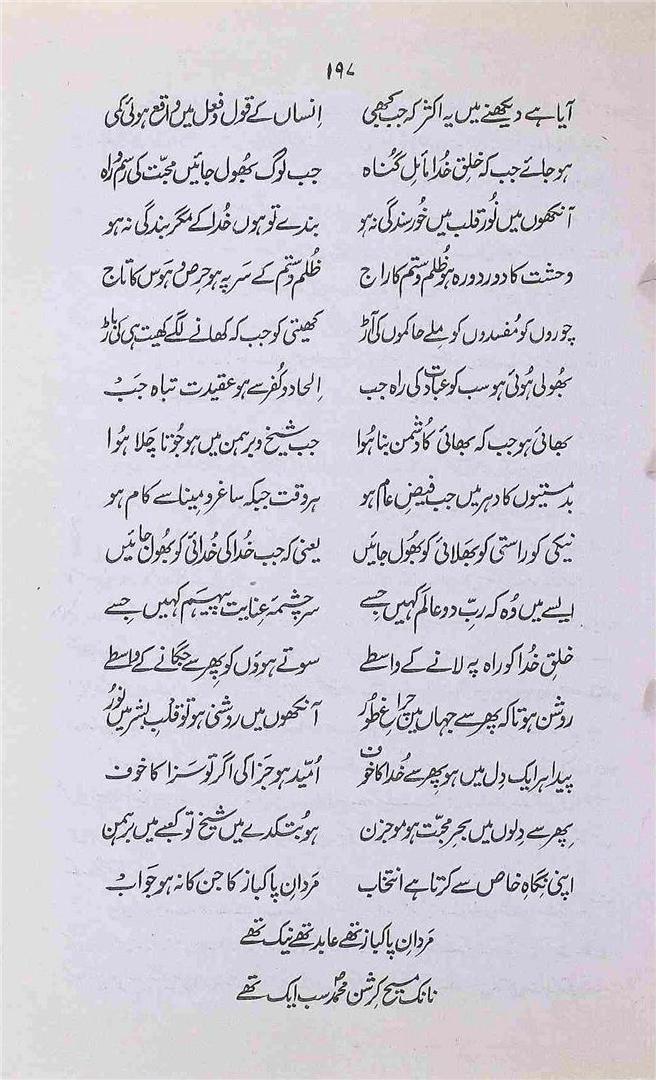 ۱۹۷
آیا ہے دیکھنے میں یہ اکثر کہ جب کبھی انساں کے قول و فعل میں واقع ہوئی کمی
ہو جائے جب کہ خلقِ خُدا مائلِ گُناہ جب لوگ بھُول جائیں محبّت کی رسم و راہ
آنکھوں میں نُور قلب میں خُورسندگی نہ ہو بندے تو ہوں خُدا کے مگر بندگی نہ ہو
وحشت کا دور دورہ ہو ظُلم و ستم کا راج ظُلم و ستم کے سر پہ ہو حرص و ہَوس کا تاج
چوروں کو مُفسدوں کو ملے حاکموں کی آڑ کھیتی کو جب کہ کھانے لگے کھیت ہی کی باڑ
بھُولی ہُوئی ہو سب کو عبادت کی راہ جب الحاد و کُفر سے ہو عقیدت تباہ جب
بھائی ہو جب کہ بھائی کا دُشمن بنا ہُوا جب شیخ و برہمن میں ہو جُوتا چلا ہُوا
بدمستیوں کا دہر میں جب فیضِ عام ہو ہر وقت جبکہ ساغر و مِینا سے کام ہو
نیکی کو راستی کو بھلائی کو بھُول جائیں یعنی کہ جب خُدا کی خُدائی کو بھُول جائیں
ایسے میں وُہ کہ ربِّ دو عالم کہیں جِسے سرچشمۂ عنایتِ پیہم کہیں جِسے
خلقِ خُدا کو راہ پہ لانے کے واسطے سوتے ہوؤں کو پھر سے جگانے کے واسطے
روشن ہو تاکہ پھر سے جہاں میں چراغِ طُور آنکھوں میں روشنی ہو تو قلبِ بشر میں نُور
پیدا ہر ایک دِل میں ہو پھر سے خُدا کا خوف اُمّید ہو جزا کی اگر تو سزا کا خوف
پھر سے دِلوں میں بحرِ محبّت ہو موجزن ہو بُتکدے میں شیخ تو کعبے میں برہمن
اپنی نگاہِ خاص سے کرتا ہے انتخاب مَردانِ پاکباز کا جن کا نہ ہو جواب
مَردانِ پاکباز تھے عابد تھے نیک تھے
نانک مسیح کرشن محمدؐ سب ایک تھے